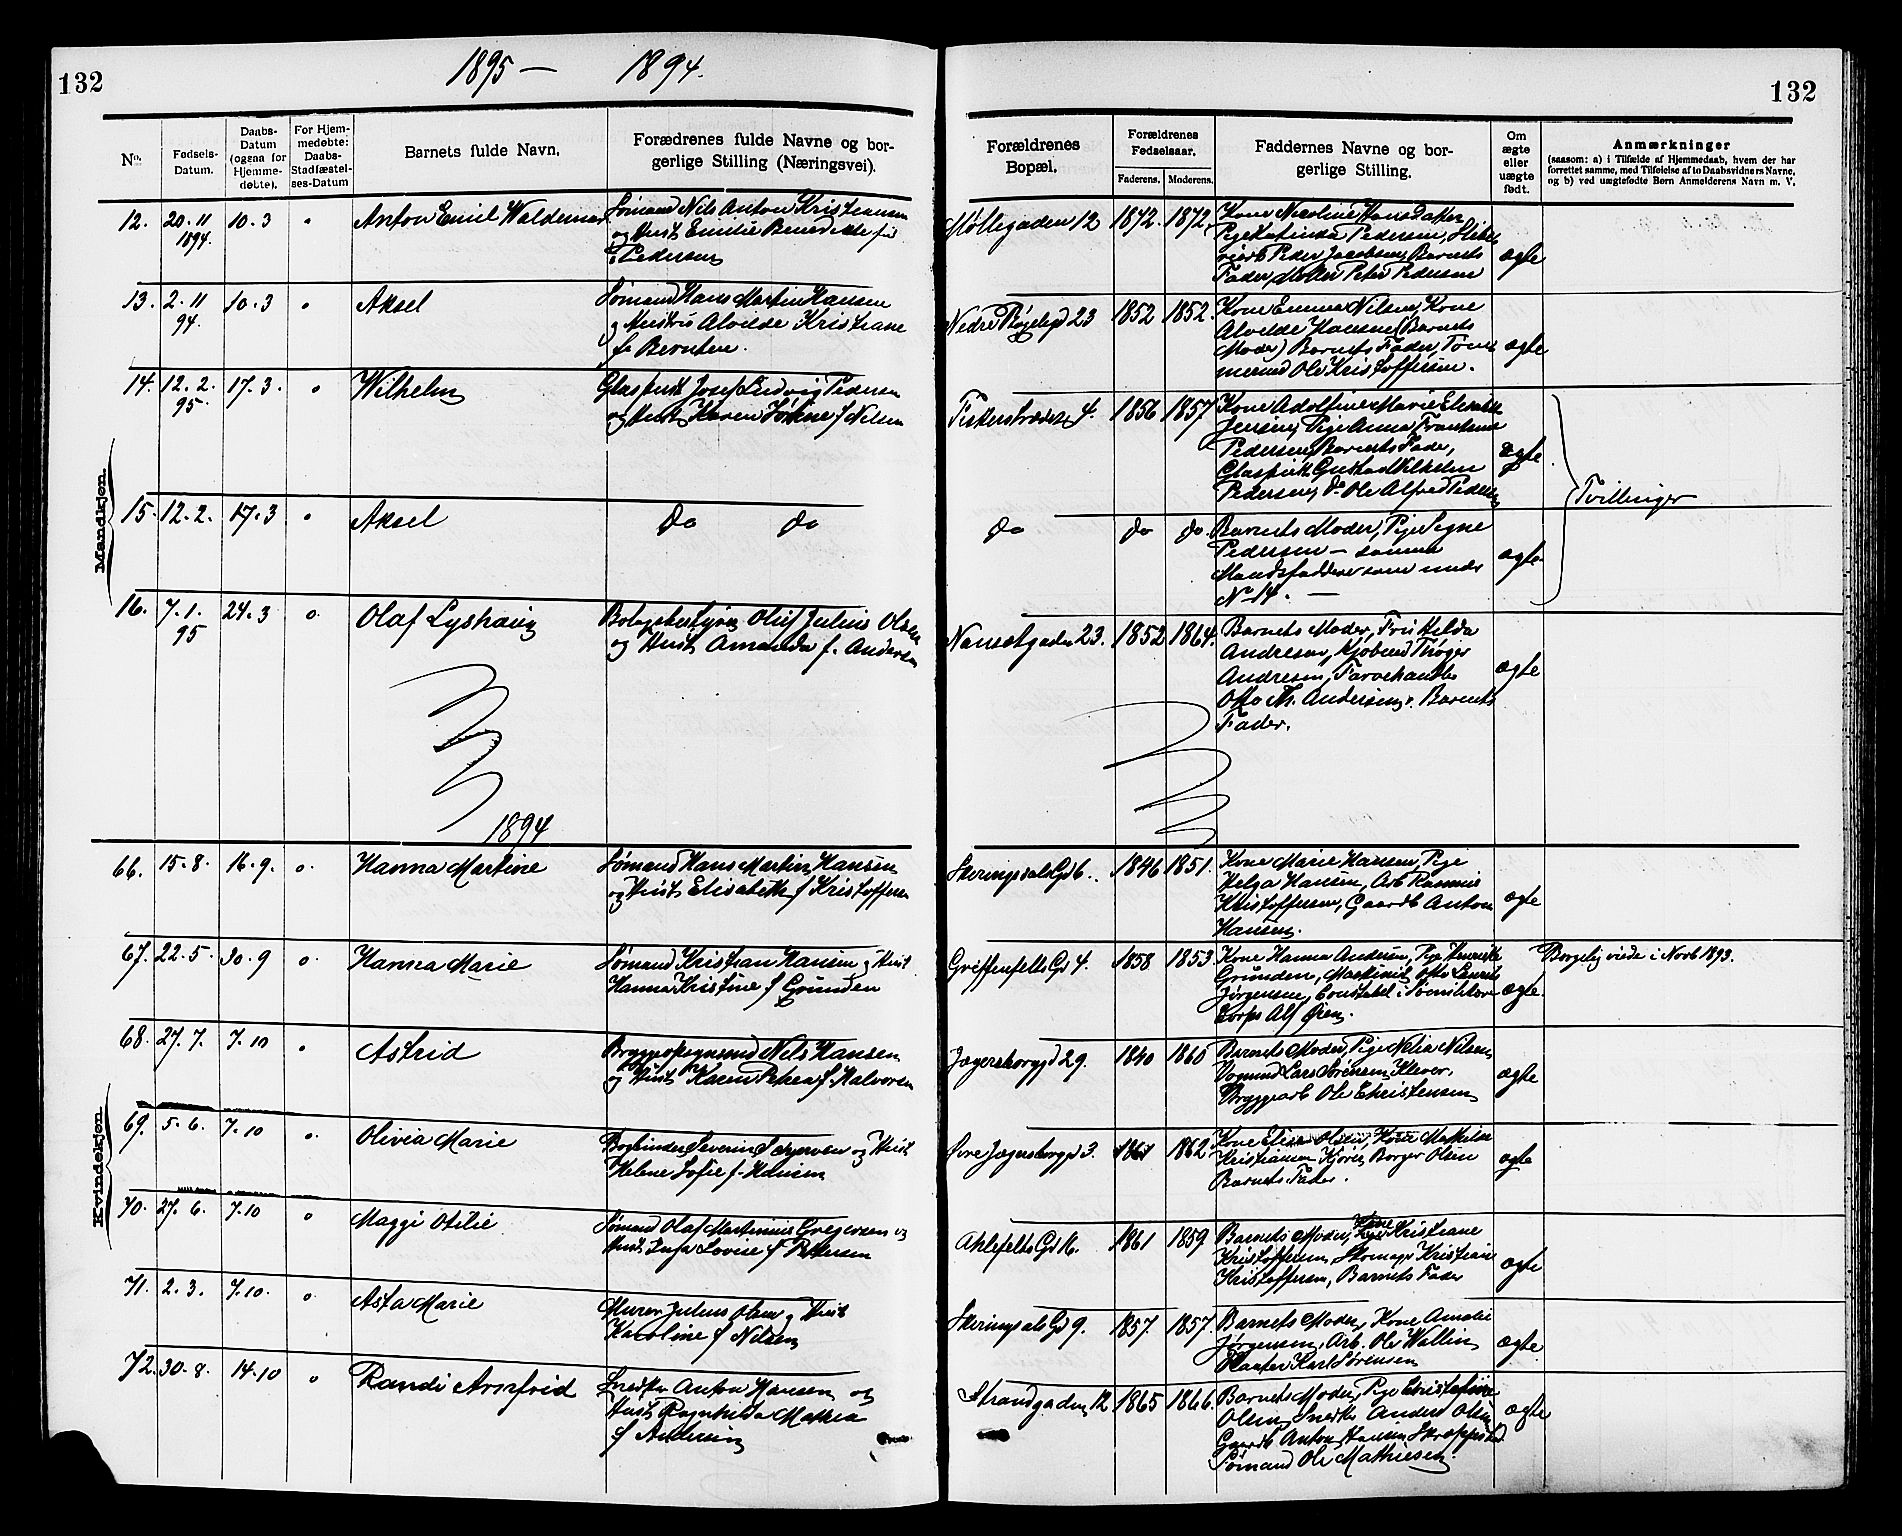 132
1895 — 1894.
132
No.
Fødsels-Datum.
Daabs-Datum (ogsaa for Hjemme-døbte).
For Hjem-medøbte: Daabs-Stadfæstel-ses-Datum
Barnets fulde Navn.
Forældrenes fulde Navne og bor-
gerlige Stilling (Næringsvei).
Forældrenes
Bopæl.
Forældrenes
Fødselsaar.
Faderens. Moderens.
Faddernes Navne og bor-
gerlige Stilling.
Om ægte eller uægte født.
Anmærkninger
(saasom: a) i Tilfælde af Hjemmedaab, hvem der har
forrettet samme, med Tilføielse af to Daabsvidners Navne,
og b) ved uægtefødte Børn Anmelderens Navn m. V.
Mandkjøn.
12. 20.11 1894. 10.3 " Anton Emil Waldemar
Sømand Nils Anton Kristiansen
og Hust Emilie Benedikte fød
Pedersen
Møllegaden 12 1872. 1872.
Kone Nicoline Hansdatter
Pige Katinda Pedersen,
Peder Jacobsen, Barnets
Fader, Peter Pedersen
ægte
13. 2.11 94. 10.3 " Aksel
Sømand Hans Martin Hansen
og Hustru Alvilde Kristiane
f. Berntsen.
Nedre 23 1852 1852.
Kone Emma Nilsen, Kone
Alvilde Hansen (Barnets
Moder) Barnets Fader, Tøm-
mermd Ole Kristoffersen.
ægte
14. 12.2. 95. 17.3. " Wilhelm
Josef Ludvig Pedersen
og Hust Karen f Nilsen
4. 1856 1857
Kone Adolfine Marie Elisabeth
Jensen, Pige Anna
Pedersen, Barnets Fader,
Gustav Wilhelm
Pedersen, do Ole Alfred Pedersen
ægte
Tvillinger
15. 12.2. 17.3 " Aksel
do do
do do do.
Barnets Moder, Pige Signe
Pedersen – samme
Mandsfaddere som under
No 14. —
ægte
16. 7.1. 95 24.3 " Olaf Lyshaug
Oluf Julius Olsen
og Hust Amanda f. Andersen
Nansetgaden 23. 1852 1864.
Barnets Moder, Hilda
Andresen, Kjøbmd Trøger
Andresen, Farvehandler
Otto M. Andersen, Barnets
Fader.
ægte
1894
Kvindekjøn.
66. 15.8. 16.9. " Hanna Martine
Sømand Hans Martin Hansen
og Hust Elisabeth f Kristoffersen
Skiringsals Gd 6.. 1846 1851.
Kone Marie Hansen, Pige
Helga Hansen, Arb Rasmus
Kristoffersen, Gaardb Anton
Hansen.
ægte
67. 22.5. 30.9 " Hanna Marie
Sømand Kristian Hansen og Hust
Hanna Kristine f Grunden
Griffenfelts Gd 4. 1858 1853
Kone Hanna Andersen, Pige Henriette
Grunden, Maskinist Otto Laurits
Jørgensen, Constabel i
Corps Alf Øren.
ægte.
Borgelig viede i Novb 1893.
68. 27.7. 7.10 " Astrid
Nils Hansen
og Hust Karen Petrea f. Halvorsen
Jægersborggd 29. 1840 1860
Barnets Moder, Pige Nilsen,
Lars Sørensen Klever,
Bryggearb Ole Christensen
ægte
69. 5.6. 7.10 " Olivia Marie
Bogbinder Severin og Hust
Helene Sofie f. Hansen
Øvre Jægersborggd 3. 1861 1862.
Kone Elise Olsen, Kone
Kristiansen Borger Olsen
Barnets Fader.
ægte
70. 27.6. 7.10 " Maggi Otilie
Sømand Olaf Martinius Gregersen og
Hust Inga Lovise f Pettersen
Ahlefelts Gd 16. 1861 1859
Barnets Moder, Kone Kristiane
Kristoffersen, Skomagr Kristian
Kristoffersen, Barnets Fader
ægte
71. 2.3. 7.10. " Asta Marie
Murer Julius Olsen og Hust
Karoline f Nilsen
Skiringsals Gd 9. 1857. 1857.
Barnets Moder, Kone Amalie
Jørgensen, Arb. Ole Wallin
Karl Sørensen
ægte
72. 30.8. 14.10 " Randi Arnfrid
Snedker Anton Hansen og
Hust Ragnhilda Mathea
f Andersen
Strandgaden 12 1865 1866.
Barnets Moder, Pige Christofine
Olsen, Snedker Anders Olsen
Gaardb Anton Hansen
Sømand Ole Mathiesen.
ægte